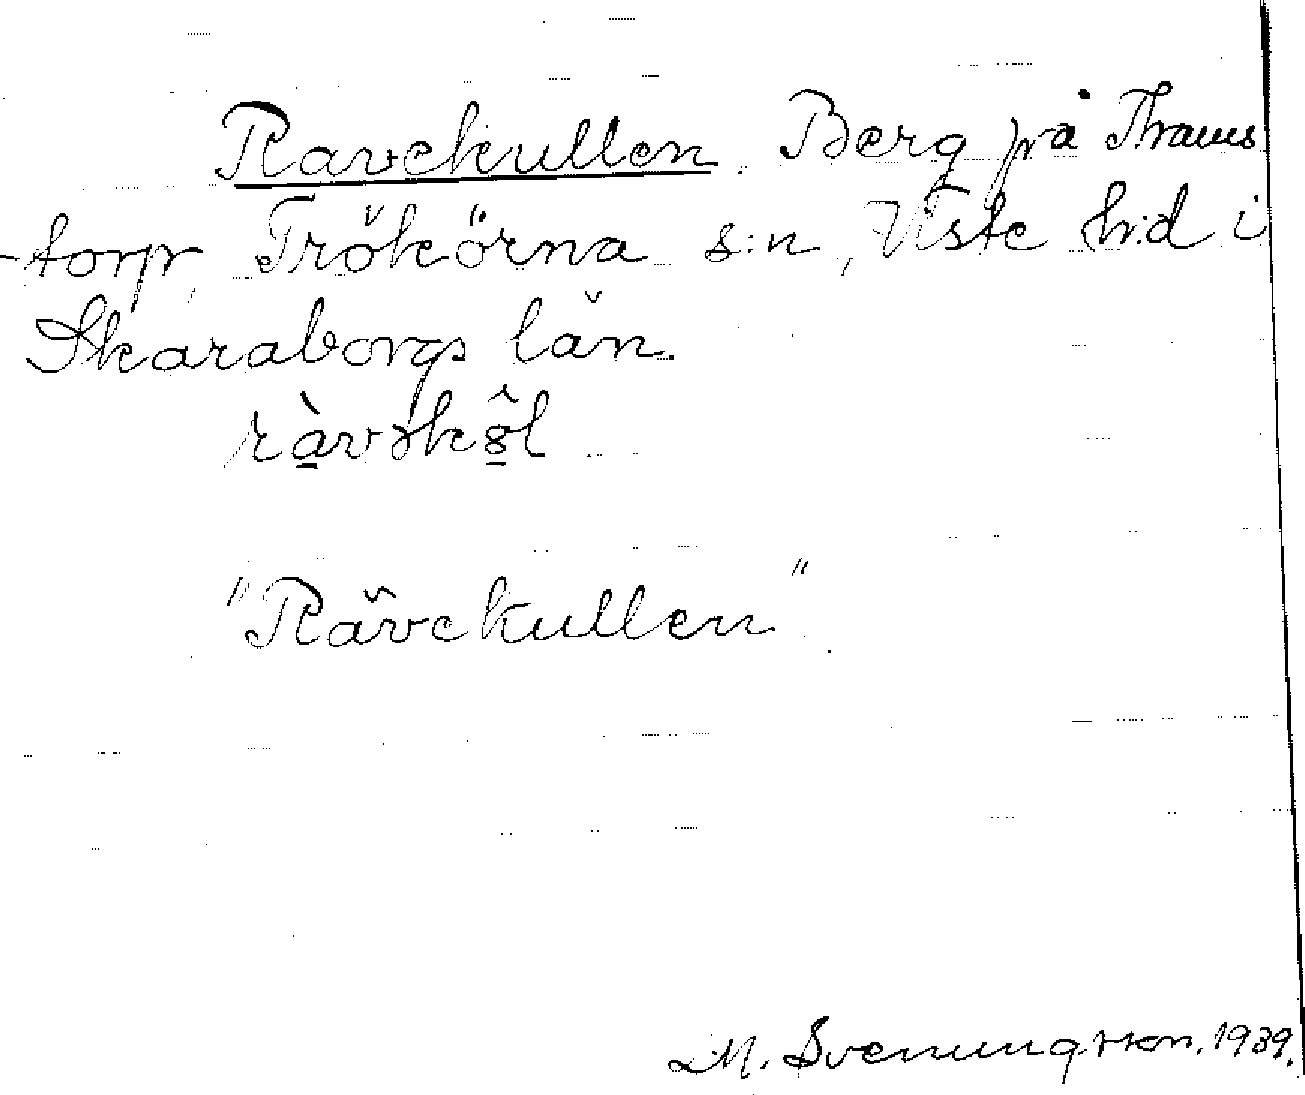 Ravekullen. Berg på Thraws
-torp, Trökörna s:n, Viste h:d i
Skaraborgs län.
ràvəkô̯l
"Rävekullen"
M. Svenungsson. 1939.